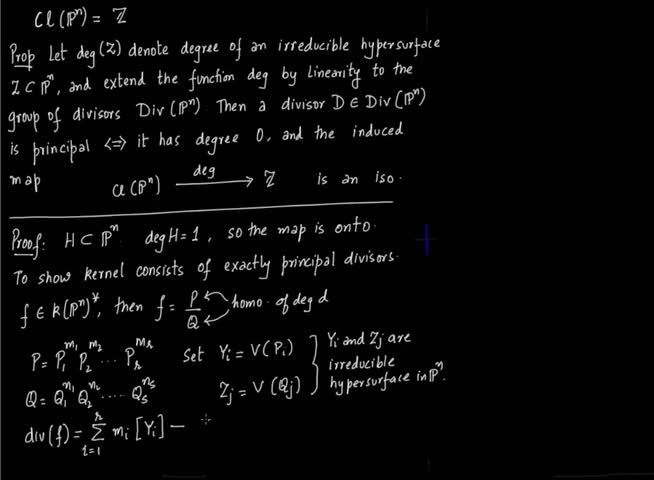 Cl(ℙⁿ) = ℤ
Prop Let deg(Z) denote degree of an irreducible hypersurface
Z ⊂ ℙⁿ, and extend the function deg by linearity to the
group of divisors Div(ℙⁿ). Then a divisor D ∈ Div(ℙⁿ)
is principal <=> it has degree 0, and the induced
map Cl(ℙⁿ) —deg→ ℤ is an iso.
Proof: H ⊂ ℙⁿ deg H = 1, so the map is onto.
To show kernel consists of exactly principal divisors.
f ∈ k(ℙⁿ)*, then f = P/Q homo. of deg d
P = P₁^m₁ P₂^m₂ ... Pᵣ^mᵣ Set Yᵢ = V(Pᵢ) } Yᵢ and Zⱼ are
Q = Q₁^n₁ Q₂^n₂ .... Qₛ^nₛ Zⱼ = V(Qⱼ) } irreducible
hypersurface in ℙⁿ.
div(f) = Σ_{i=1}^{r} mᵢ [Yᵢ] —